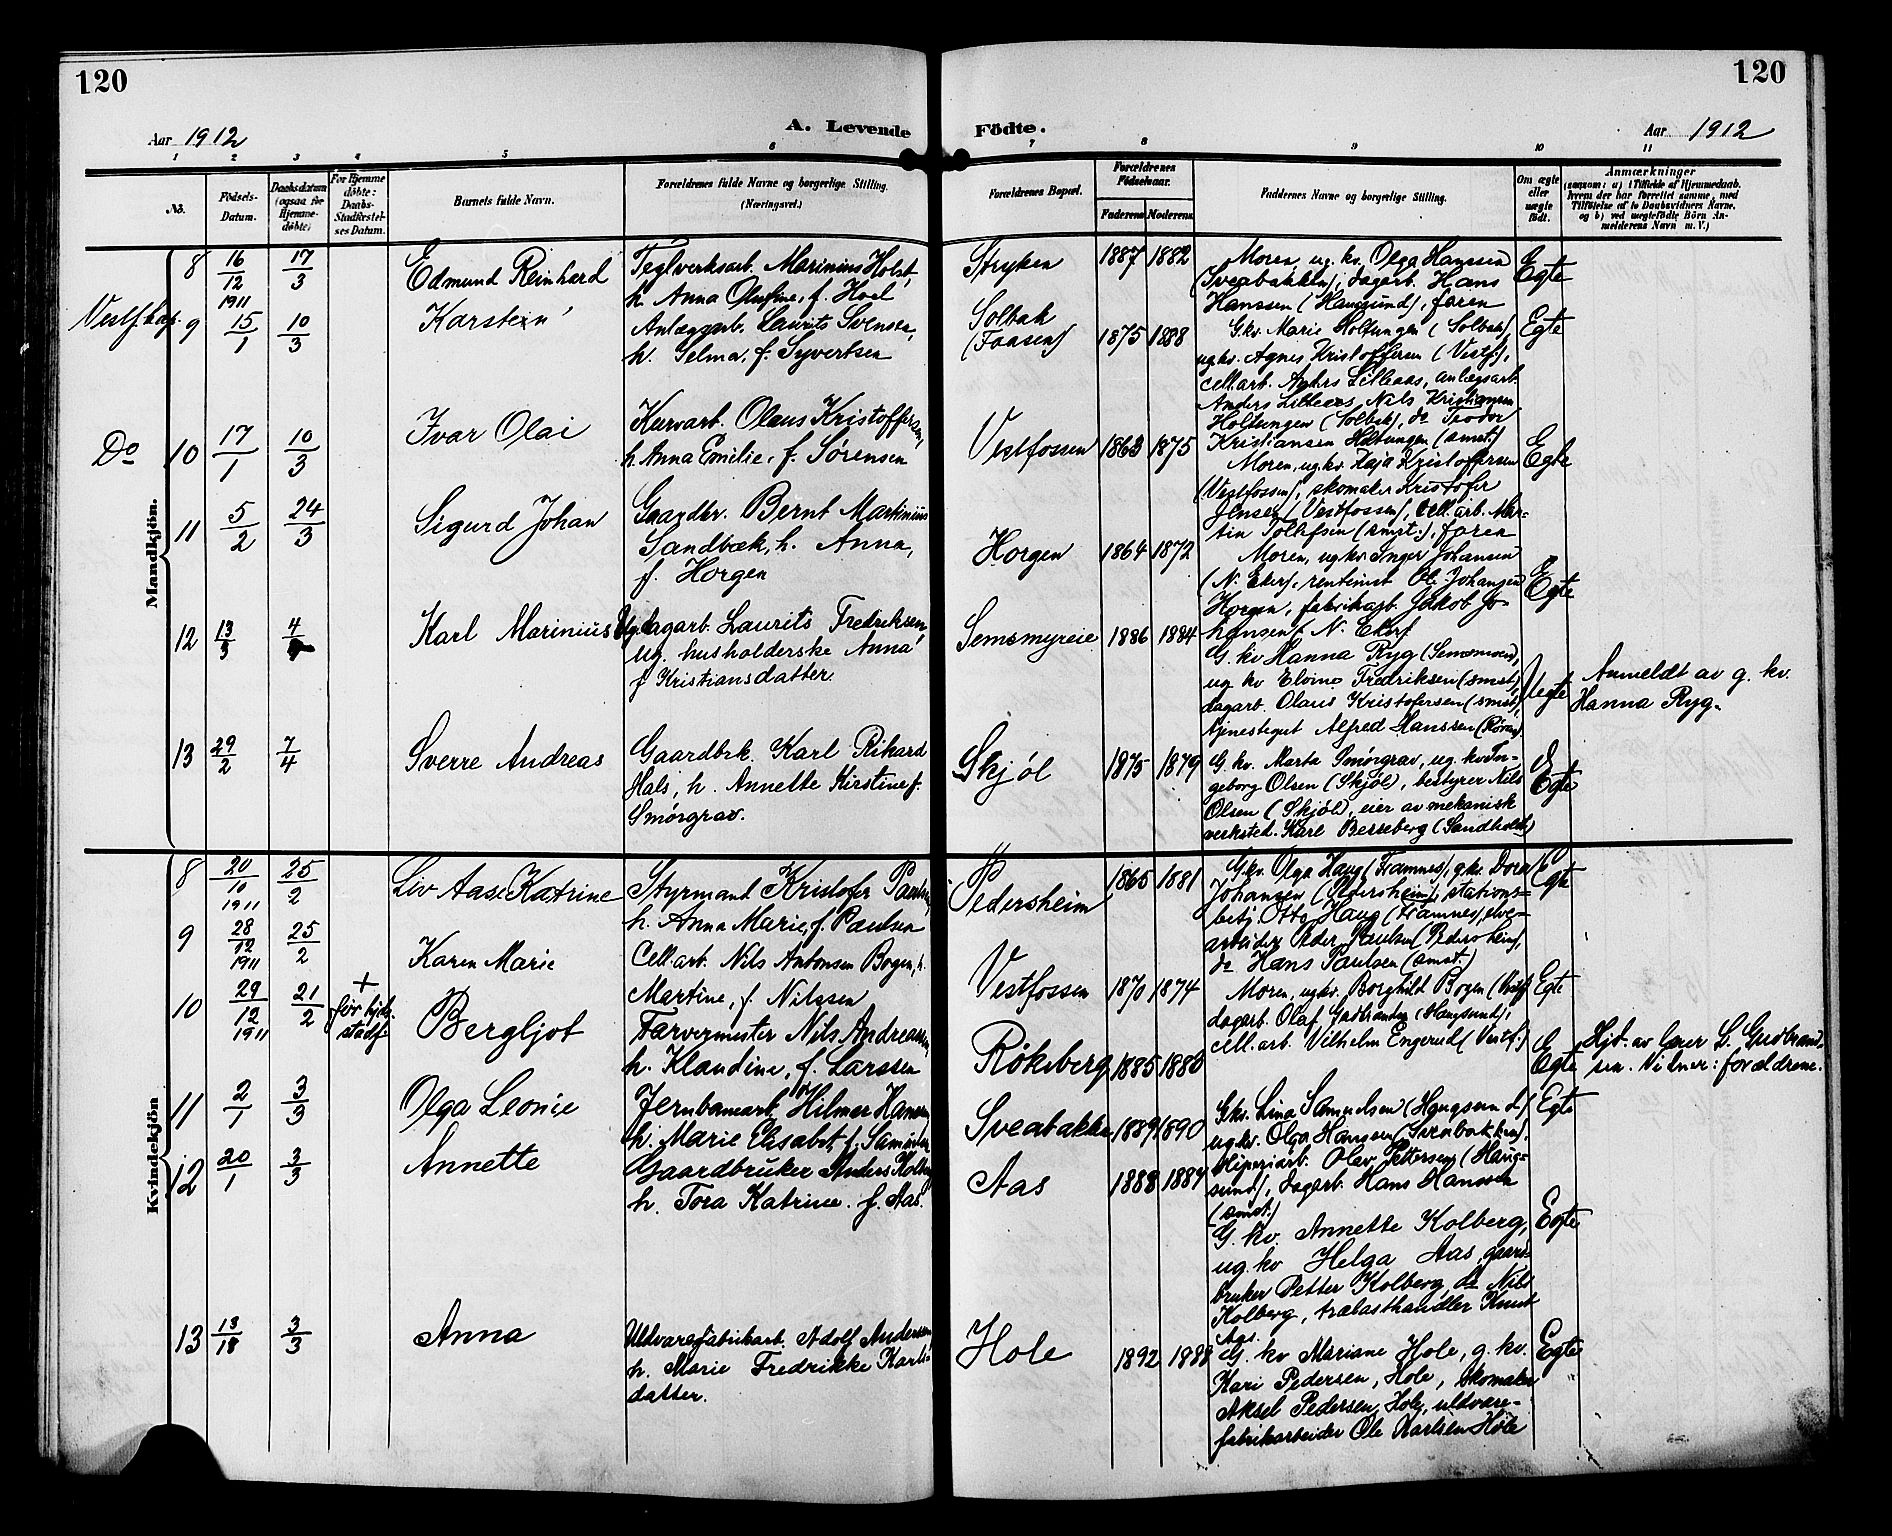 120
120
Aar 1912
A. Levende
Födte.
Aar 1912
1 2 3 4 5 6 7 8 9 10 11
No.
Födsels-
Datum.
Daabsdatum
(ogsaa for
Hjemme-
døbte)
For Hjemme
døbte:
Daabs-
Stadfæstel-
ses Datum.
Barnets fulde Navn.
Forældrenes fulde Navne og borgerlige Stilling.
(Næringsvei.)
Forældrenes Bopæl.
Forældrenes
Födselsaar.
Faderens Moderens
Faddernes Navne og borgerlige Stilling.
Om ægte
eller
uægte
født.
Anmærkninger
(saasom: a) i Tilfælde af Hjemmedaab,
hvem der har forrettet samme, med
Tilføielse af to Daabsvidners Navne,
og b) ved uægtefødte Börn An-
melderens Navn m. V.)
Mandkjön.
8 16/12 1911 17/3
Edmund Reinhard
Teglverksarb. Marinius Holst,
h. Anna Olufine, f. Hoel
Stryken
1887 1882
Moren, ug. kv. Olga Hanssen
(Sveabakken), dagarb. Hans
Hanssen (Haugsund), faren
Egte
Vestf. kap. 9 15/1 10/3
Karstein
Anlægsarb. Laurits Svensen,
h. Selma, f. Syvertsen
Solbak
(Faasen)
1875 1888
G. kv. Marie Holtungen (Solbak),
ug. kv. Agnes Kristoffersen (Vestf.),
cell. arb. Anders Lilleaas, anlægsarb.
Anders Lilleaas, Nils Kristiansen
Holtungen (Solbak), do Teodor
Kristiansen Holtungen (smst.)
Egte
Do 10 17/1 10/3
Ivar Olai
Kurvarb. Olaus Kristoffersen,
h. Anna Emilie, f. Sørensen
Vestfossen
1863 1875
Moren, ug. kv. Kaja Kristoffersen
(Vestfossen), skomaker Kristofer
Jensen (Vestfossen), cell. arb. Mar-
tin Tollefsen (smst.), faren
Egte
11 5/2 24/3
Sigurd Johan
Gaardbr. Bernt Martinius
Sandbæk, h. Anna,
f. Horgen
Horgen
1864 1872
Moren, ug. kv. Inger Johansen
(N. Eker), rentenist Ole Johansen
Horgen, fabrikarb. Jakob Jo-
hansen (N. Eker)
Egte
12 13/3 4/
Karl Marinius
Ug. dagarb. Laurits Fredriksen,
ug. husholderske Anna
f. Kristiansdatter
Semsmyreie
1886 1884
G. kv. Hanna Ryg (Semsmoen),
ug. kv. Elvine Fredriksen (smst.),
dagarb. Olaus Kristofersen (smst.),
tjenestegut Alfred Hanssen
Uegte
Anmeldt av g. kv.
Hanna Ryg.
13 29/2 7/4
Sverre Andreas
Gaardbrk. Karl Rikard
Hals, h. Annette Kirstine f.
Smørgrav.
Skjøl
1875 1879
G. kv. Marta Smørgrav, ug. kv. In-
geborg Olsen (Skjøl), bestyrer Nils
Olsen (Skjøl), eier av mekanisk
verksted. Karl Berseberg
Egte
Kvindekjön
8 20/10 1911 25/2
Liv Aase Katrine
Styrmand Kristofer Paulsen,
h. Anna Marie, f. Paulsen
Pedersheim
1865 1881
G. kv. Olga Haug (Framnes), g. kv. Dora
Johansen (Pedersheim), stations-
betj. Otto Haug (Framnes), elve-
arbeider Peder Paulsen (Pedersheim),
do Hans Paulsen (smst.)
Egte
9 28/12 1911 25/2
Karen Marie
Cell. arb. Nils Antonsen Bogen, h.
Martine, f. Nilssen
Vestfossen
1870 1874
Moren, ug. kv. Borghild Bogen (Vestf.)
dagarb. Olaf Gudbrandsen (Haugsund),
cell. arb. Vilhelm Engerud (Vestf.)
Egte
10 29/12 1911 21/2
+ før hjd.
stadf.
Bergljot
Farvermester Nils Andreassen,
h. Klaudine, f. Larssen
Røkeberg
1885 1883
Egte
Hjd. av lærer L. Gudbrand-
sen. Vitner: forældrene.
11 2/1 3/3
Olga Leonie
Jernbanearb. Hilmer Hanssen,
h. Marie Elisabet, f. Samuelsen
Sveabakken
1889 1890
G. kv. Lina Samuelsen (Haugsund)
ug. kv. Olga Hanssen (Sveabakken),
sliperiarb. Olav Pettersen (Haug-
sund), dagarb. Hans Hanssen
(smst.)
Egte
12 20/1 3/3
Annette
Gaardbruker Anders Kolberg
h. Tora Katrine. f. Aas.
Aas
1888 1884
G. kv. Annette Kolberg,
ug. kv. Helga Aas, gaard-
bruker Petter Kolberg, do Nils
Kolberg, trælasthandler Knut
Aas.
Egte
13 13/18 3/3
Anna
Uldvarefabrikarb. Adolf Andersen,
h. Marie Fredrikke Karls-
datter.
Hole
1892 1888
G. kv. Mariane Hole, g. kv.
Kari Pedersen, Hole, skomaker
Aksel Pedersen, Hole, uldvare-
fabrikarbeider Ole Karlsen Hole
Egte